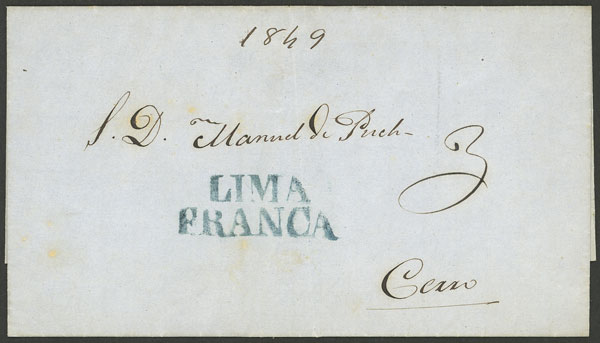 1849
S. D. Manuel de Puch
3
LIMA
FRANCA
Cerro